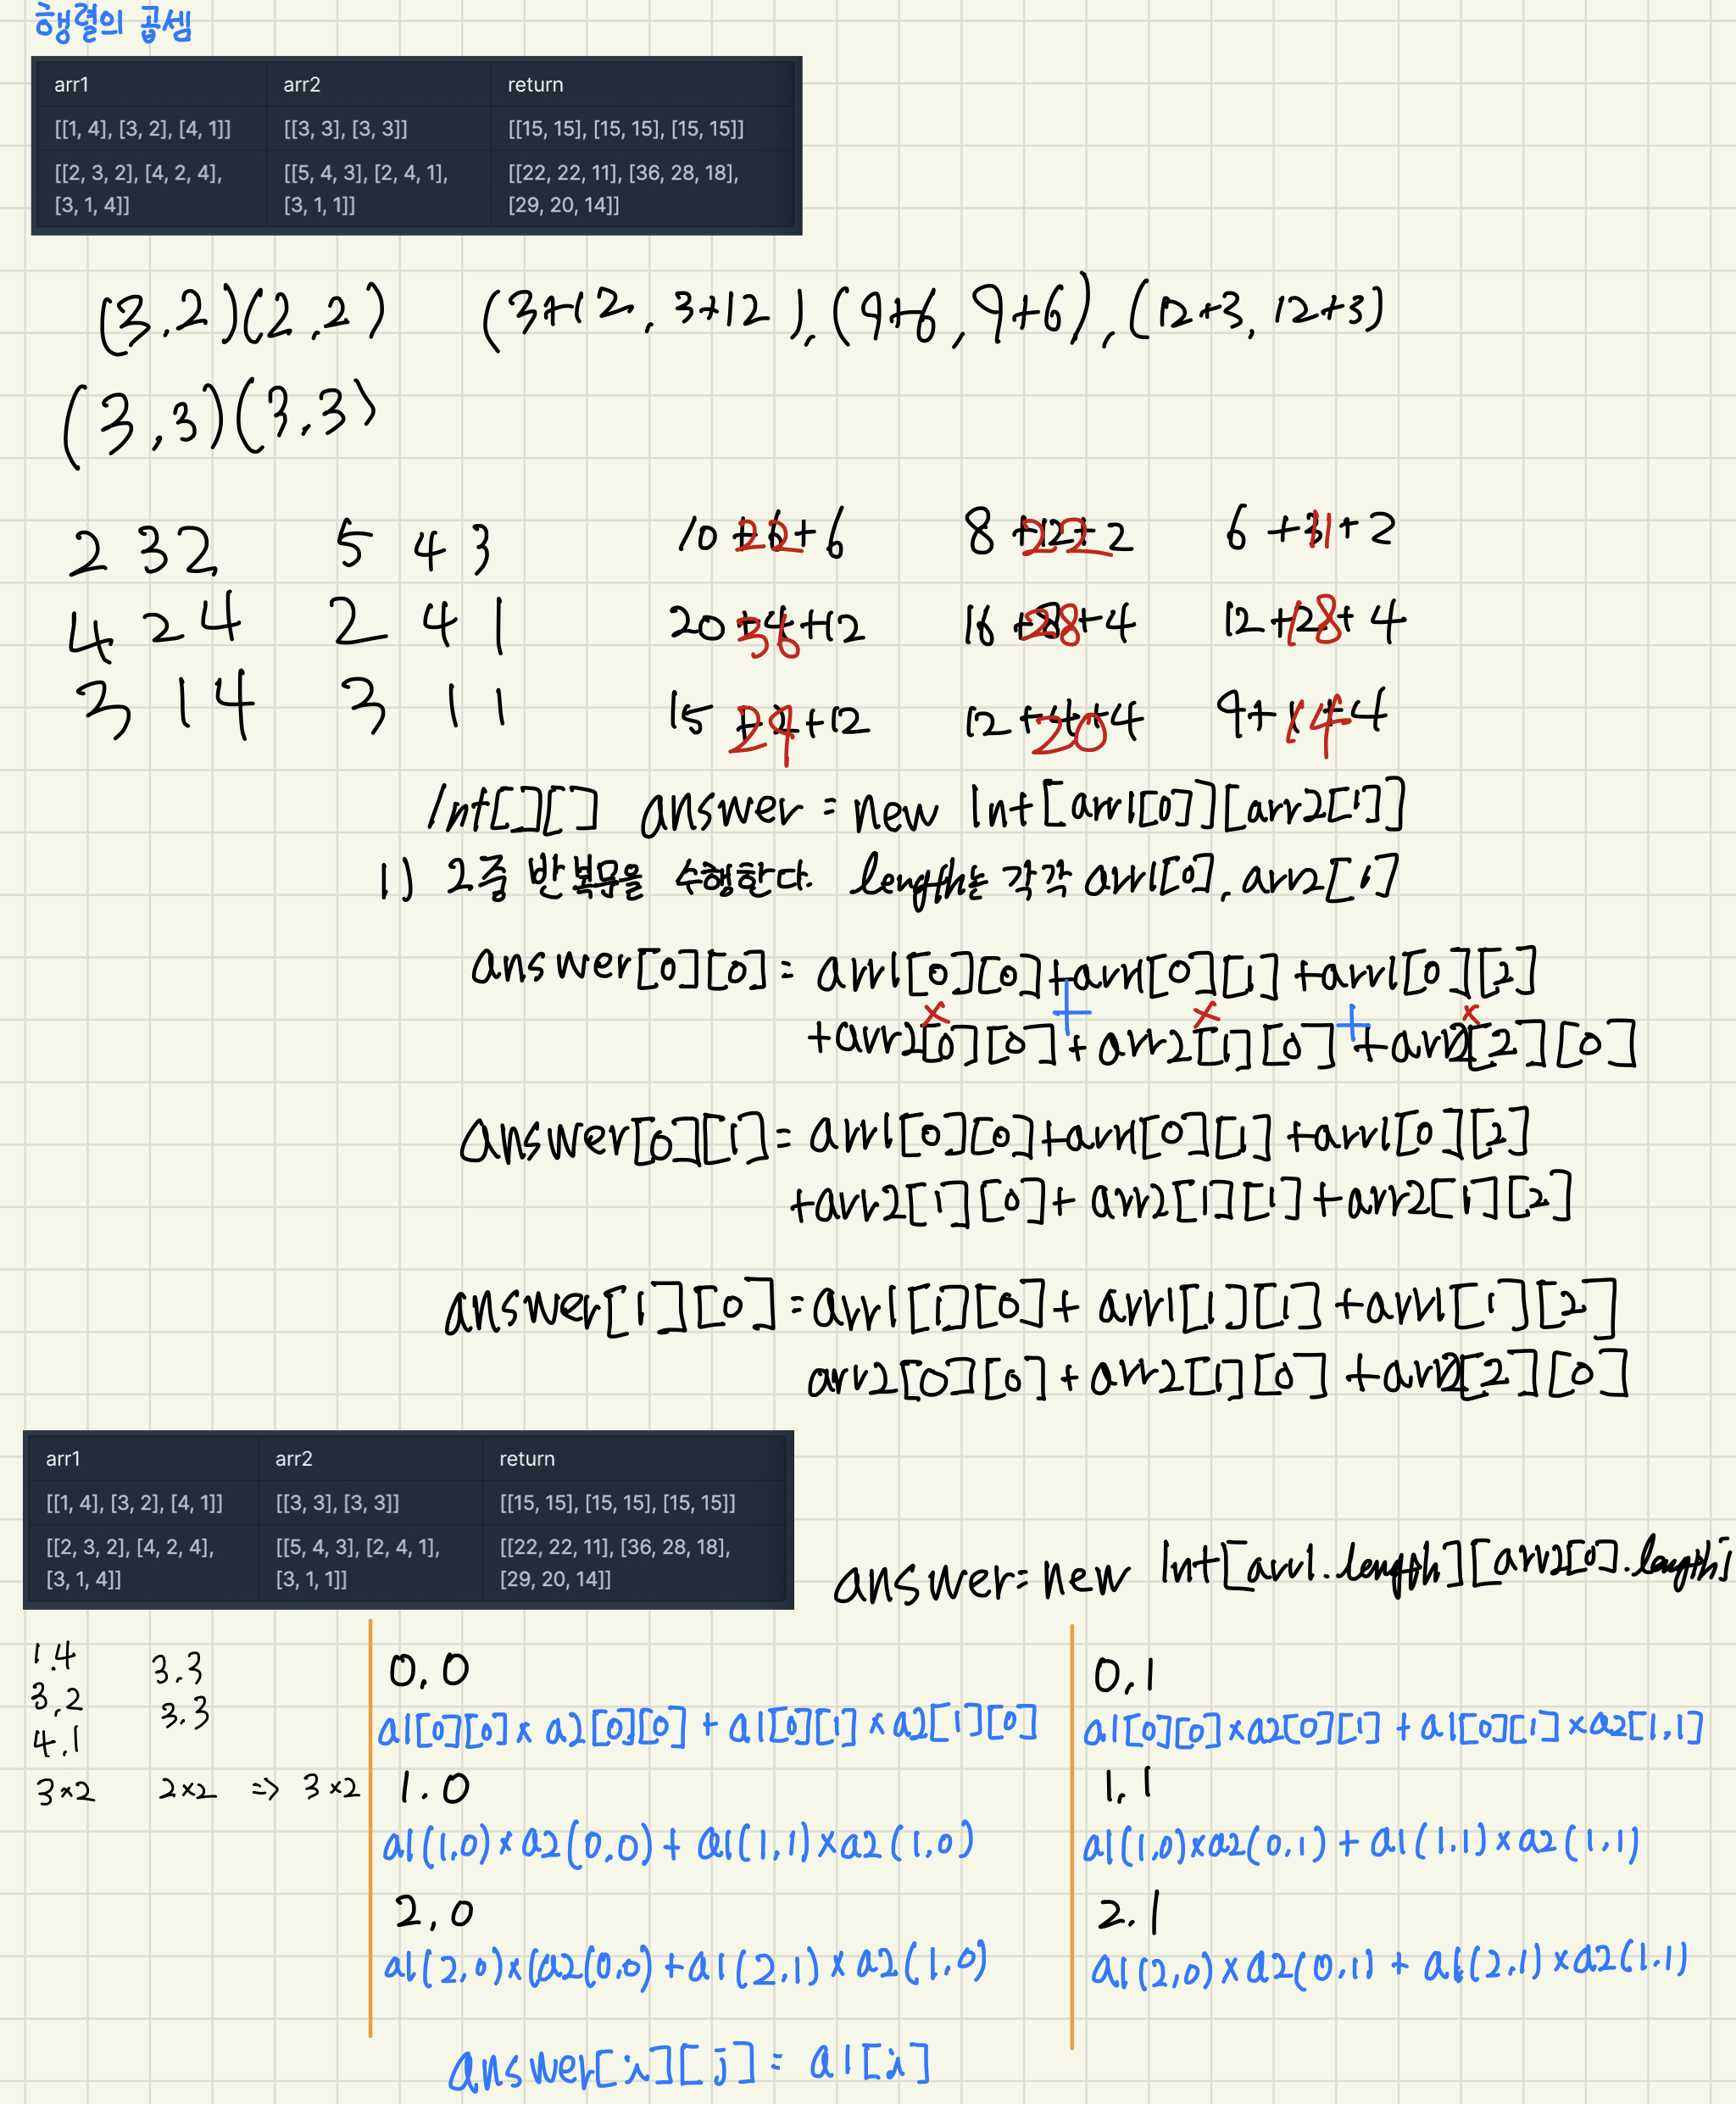 행렬의 곱셈
arr1 arr2 return
[[1, 4], [3, 2], [4, 1]] [[3, 3], [3, 3]] [[15, 15], [15, 15], [15, 15]]
[[2, 3, 2], [4, 2, 4], [[5, 4, 3], [2, 4, 1], [[22, 22, 11], [36, 28, 18],
[3, 1, 4]] [3, 1, 1]] [29, 20, 14]]
(3,2)(2,2) (3+12, 3+12), (9+6, 9+6), (12+3, 12+3)
(3,3)(3,3)
2 3 2 5 4 3 10+6+6 22 8+12+2 22 6+3+2 11
4 2 4 2 4 1 20+4+12 36 16+8+4 28 12+2+4 18
3 1 4 3 1 1 15+2+12 29 12+4+4 20 9+1+4 14
int[][] answer = new int[arr1[0]][arr2[1]]
1) 2중 반복문을 수행한다. length는 각각 arr1[0], arr2[1]
answer[0][0] = arr1[0][0]+arr1[0][1]+arr1[0][2]
× + × + ×
+arr2[0][0]+arr2[1][0]+arr2[2][0]
answer[0][1] = arr1[0][0]+arr1[0][1]+arr1[0][2]
+arr2[1][0]+arr2[1][1]+arr2[1][2]
answer[1][0] = arr1[1][0]+arr1[1][1]+arr1[1][2]
arr2[0][0]+arr2[1][0]+arr2[2][0]
arr1 arr2 return
[[1, 4], [3, 2], [4, 1]] [[3, 3], [3, 3]] [[15, 15], [15, 15], [15, 15]]
[[2, 3, 2], [4, 2, 4], [[5, 4, 3], [2, 4, 1], [[22, 22, 11], [36, 28, 18],
[3, 1, 4]] [3, 1, 1]] [29, 20, 14]]
answer = new int[arr1.length][arr2[0].length]
1.4 3.3
3,2 3.3
4.1
3×2 2×2 => 3×2
0,0
a1[0][0] × a2[0][0] + a1[0][1] × a2[1][0]
1.0
a1(1,0) × a2(0,0) + a1(1,1) × a2(1,0)
2,0
a1(2,0)×(a2(0,0) + a1(2,1) × a2(1,0)
0,1
a1[0][0]×a2[0][1] + a1[0][1] ×a2[1,1]
1,1
a1(1,0)×a2(0,1) + a1(1,1) × a2(1,1)
2.1
a1(2,0) × a2(0,1) + a1(2,1) × a2(1,1)
answer[i][j] = a1[i]